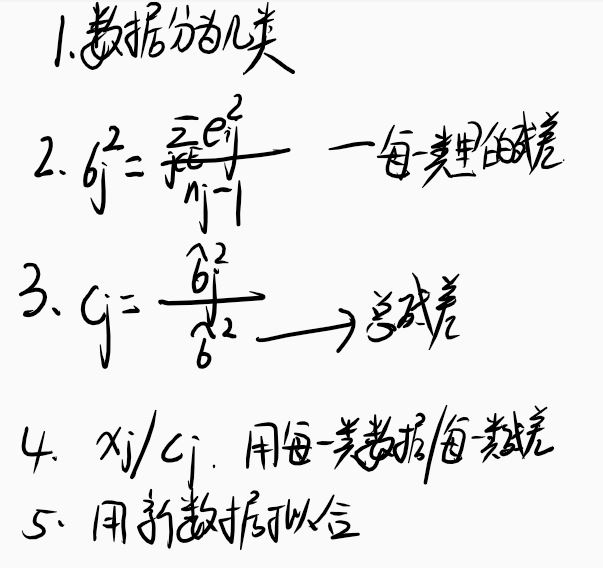 1.数据分为几类
2. σ_j^2 = Σ_{j∈} e_{ij}^2 / (n_j-1) —每一类里的残差
3、c_j = σ̂_j^2 / σ̂^2 → 总残差
4. x_j/c_j. 用每一类数据/每一类残差
5. 用新数据拟合